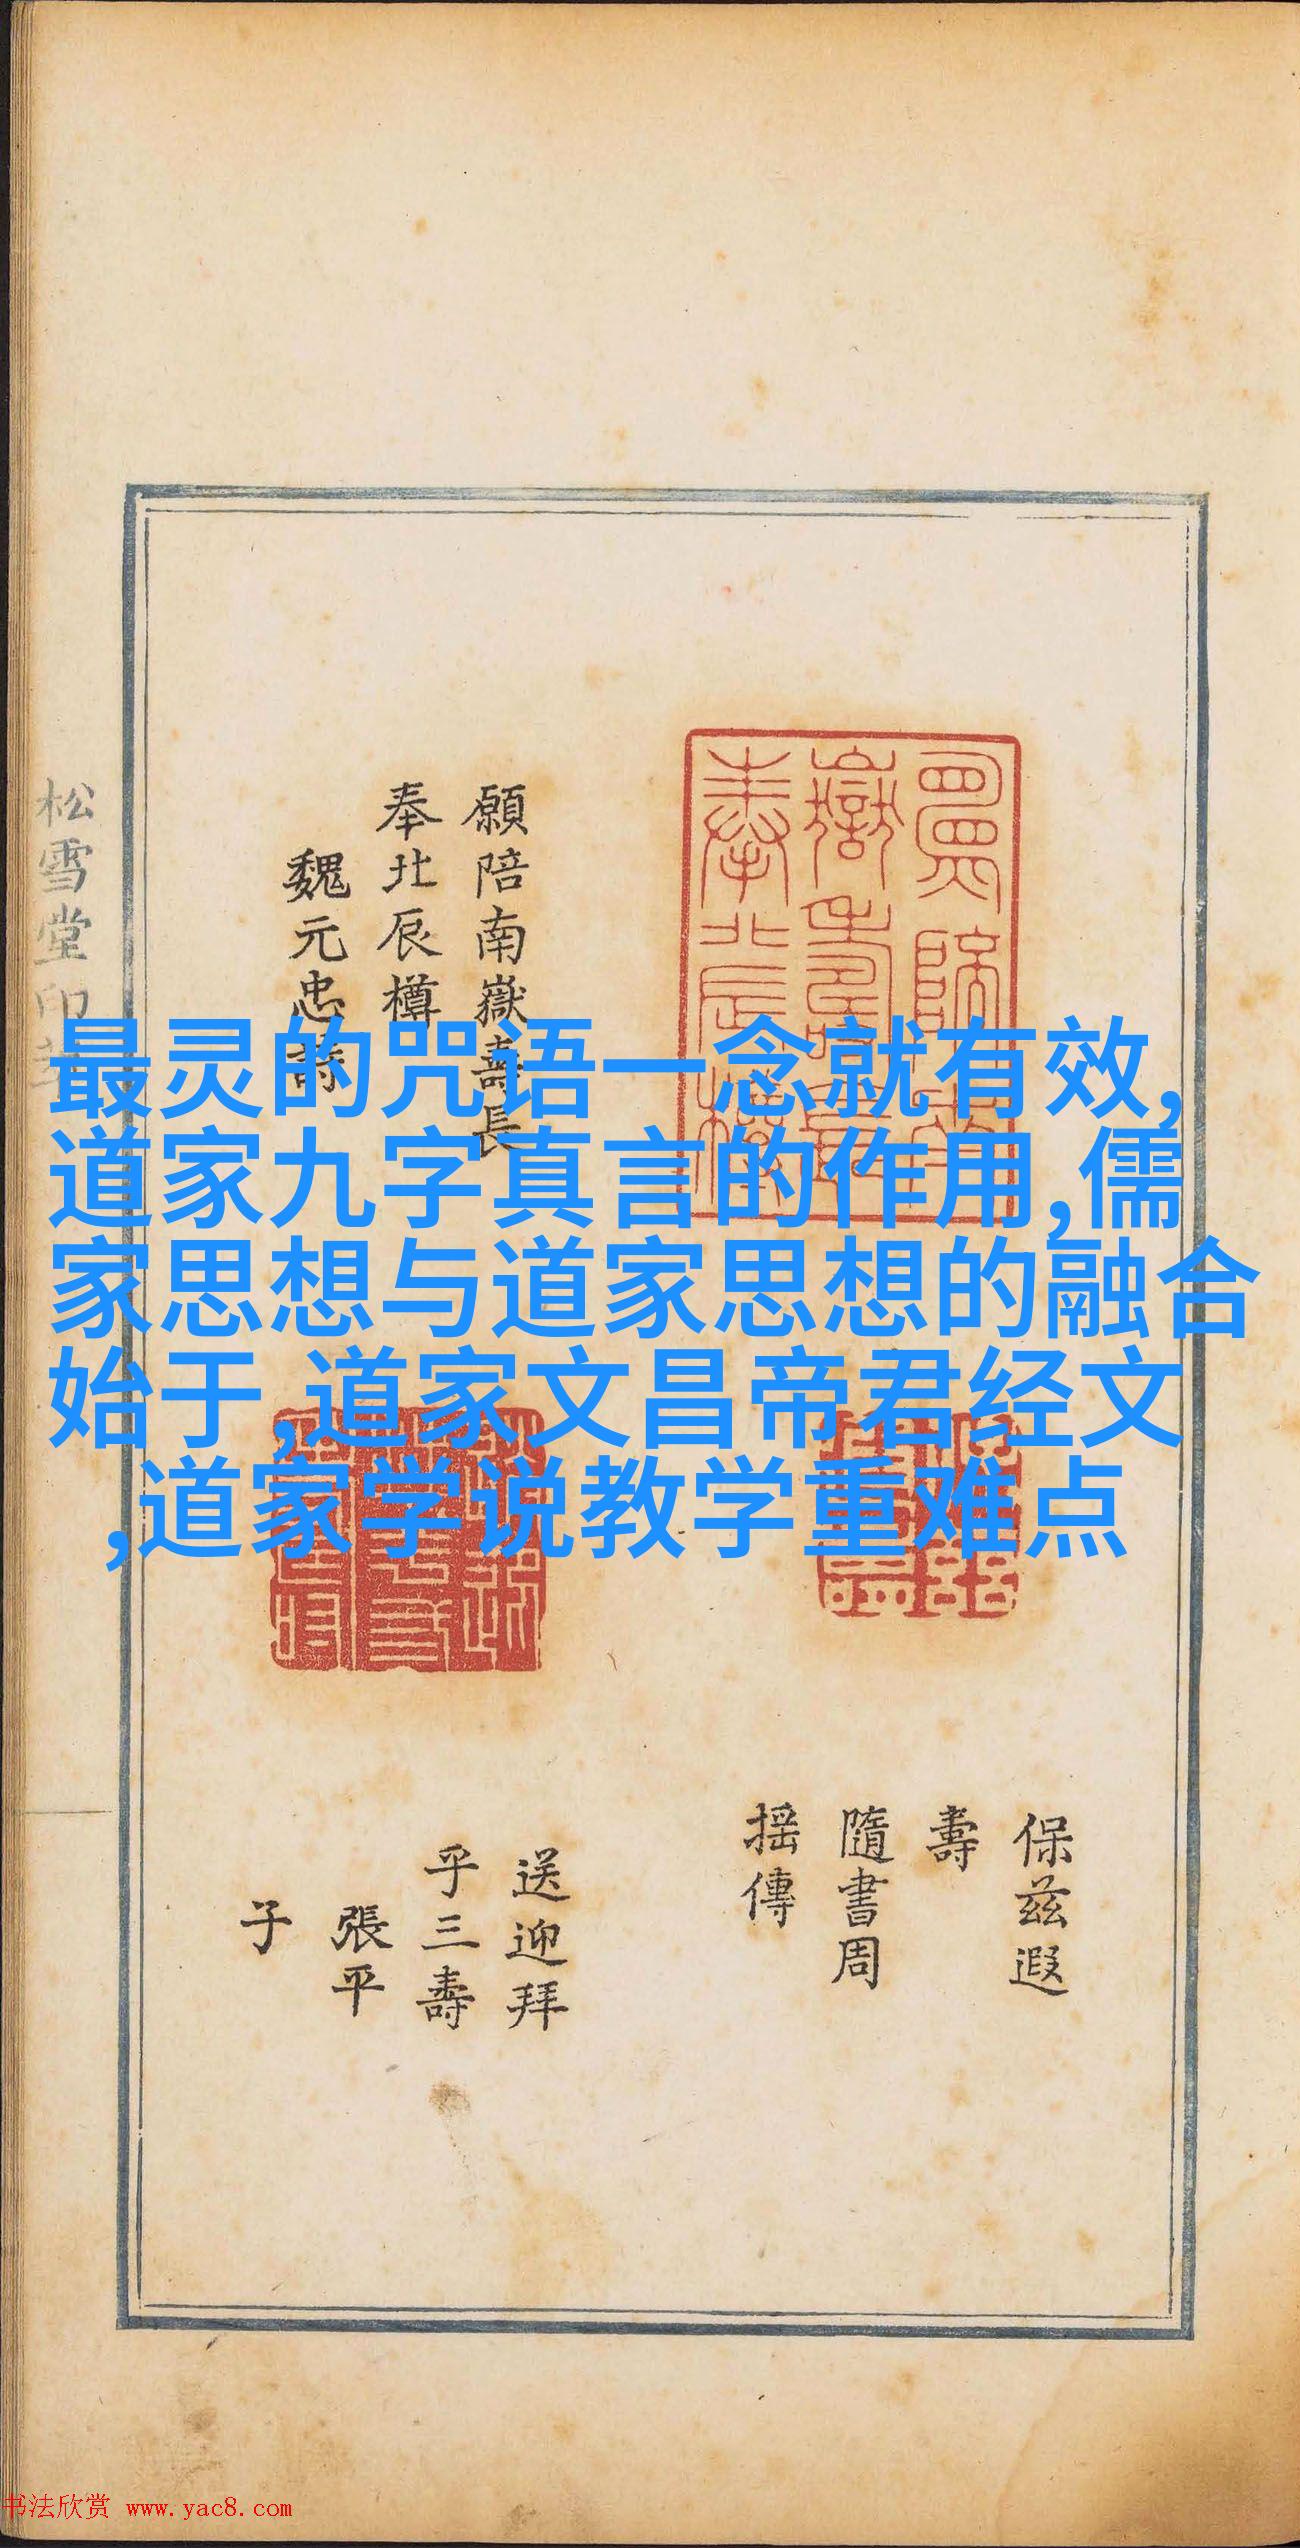 願陪南嶽壽長
奉北辰樽
魏元忠詩
松雪堂印
最灵的咒语一念就有效,
道家九字真言的作用,儒
家思想与道家思想的融合
始于,道家文昌帝君经文
,道家学说教学重难点
保茲遐
壽
隨書周
揺傳
送迎拜
乎三壽
張平
子
书法欣赏 www.yac8.com